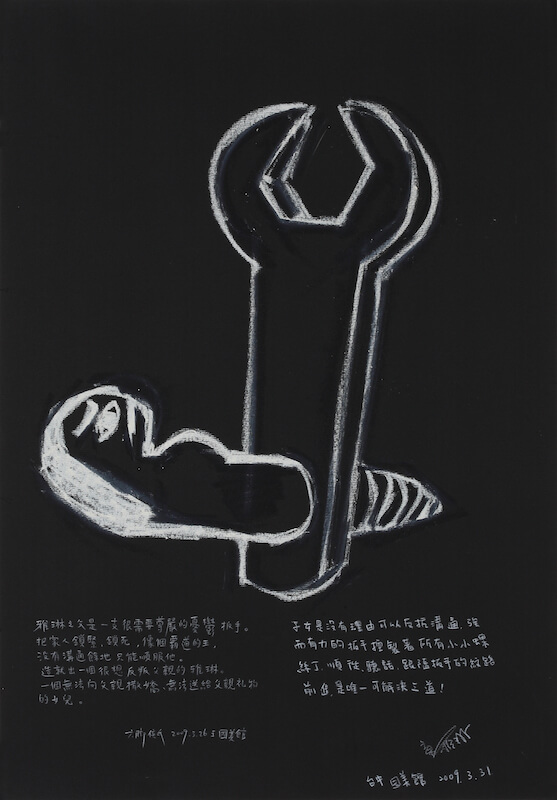 雅琳之父是一支很需要尊嚴的憂鬱扳手。
把家人鎖緊、鎖死,像個霸道的王,
沒有溝通餘地只能順服他。
造就出一個很想反叛父親的雅琳。
一個無法向父親撒嬌、無法送給父親礼物
的女兒。
2009.3.26 於國美館
子女是沒有理由可以反抗溝通,強
而有力的扳手控制著所有小小螺
絲丁,順從、聽話、跟隨扳手的紋路
前進,是唯一可解決之道!
台中 國美館 2009.3.31.